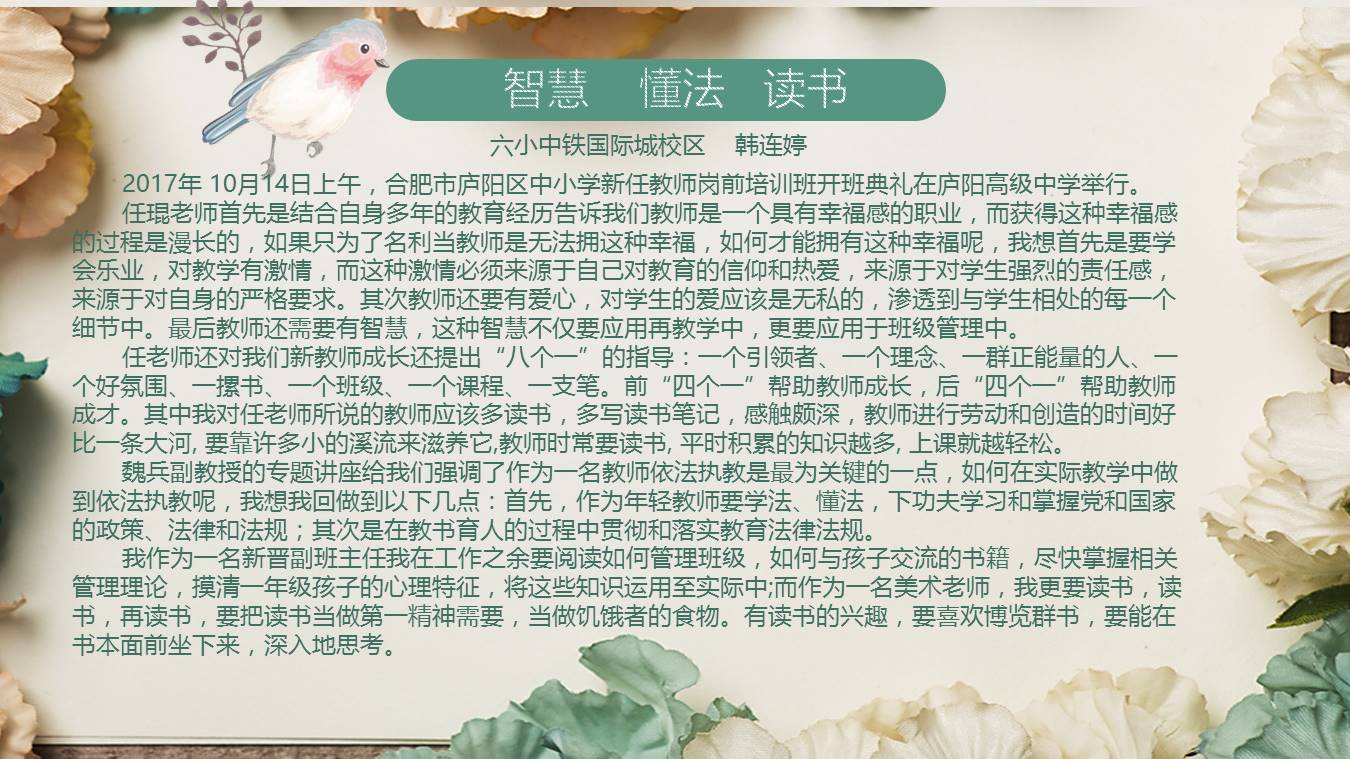 智慧 懂法 读书
六小中铁国际城校区 韩连婷
2017年 10月14日上午，合肥市庐阳区中小学新任教师岗前培训班开班典礼在庐阳高级中学举行。
任琨老师首先是结合自身多年的教育经历告诉我们教师是一个具有幸福感的职业，而获得这种幸福感
的过程是漫长的，如果只为了名利当教师是无法拥这种幸福，如何才能拥有这种幸福呢，我想首先是要学
会乐业，对教学有激情，而这种激情必须来源于自己对教育的信仰和热爱，来源于对学生强烈的责任感，
来源于对自身的严格要求。其次教师还要有爱心，对学生的爱应该是无私的，渗透到与学生相处的每一个
细节中。最后教师还需要有智慧，这种智慧不仅要应用再教学中，更要应用于班级管理中。
任老师还对我们新教师成长还提出“八个一”的指导：一个引领者、一个理念、一群正能量的人、一
个好氛围、一摞书、一个班级、一个课程、一支笔。前“四个一”帮助教师成长，后“四个一”帮助教师
成才。其中我对任老师所说的教师应该多读书，多写读书笔记，感触颇深，教师进行劳动和创造的时间好
比一条大河, 要靠许多小的溪流来滋养它,教师时常要读书, 平时积累的知识越多, 上课就越轻松。
魏兵副教授的专题讲座给我们强调了作为一名教师依法执教是最为关键的一点，如何在实际教学中做
到依法执教呢，我想我回做到以下几点：首先，作为年轻教师要学法、懂法，下功夫学习和掌握党和国家
的政策、法律和法规；其次是在教书育人的过程中贯彻和落实教育法律法规。
我作为一名新晋副班主任我在工作之余要阅读如何管理班级，如何与孩子交流的书籍，尽快掌握相关
管理理论，摸清一年级孩子的心理特征，将这些知识运用至实际中;而作为一名美术老师，我更要读书，读
书，再读书，要把读书当做第一精神需要，当做饥饿者的食物。有读书的兴趣，要喜欢博览群书，要能在
书本面前坐下来，深入地思考。